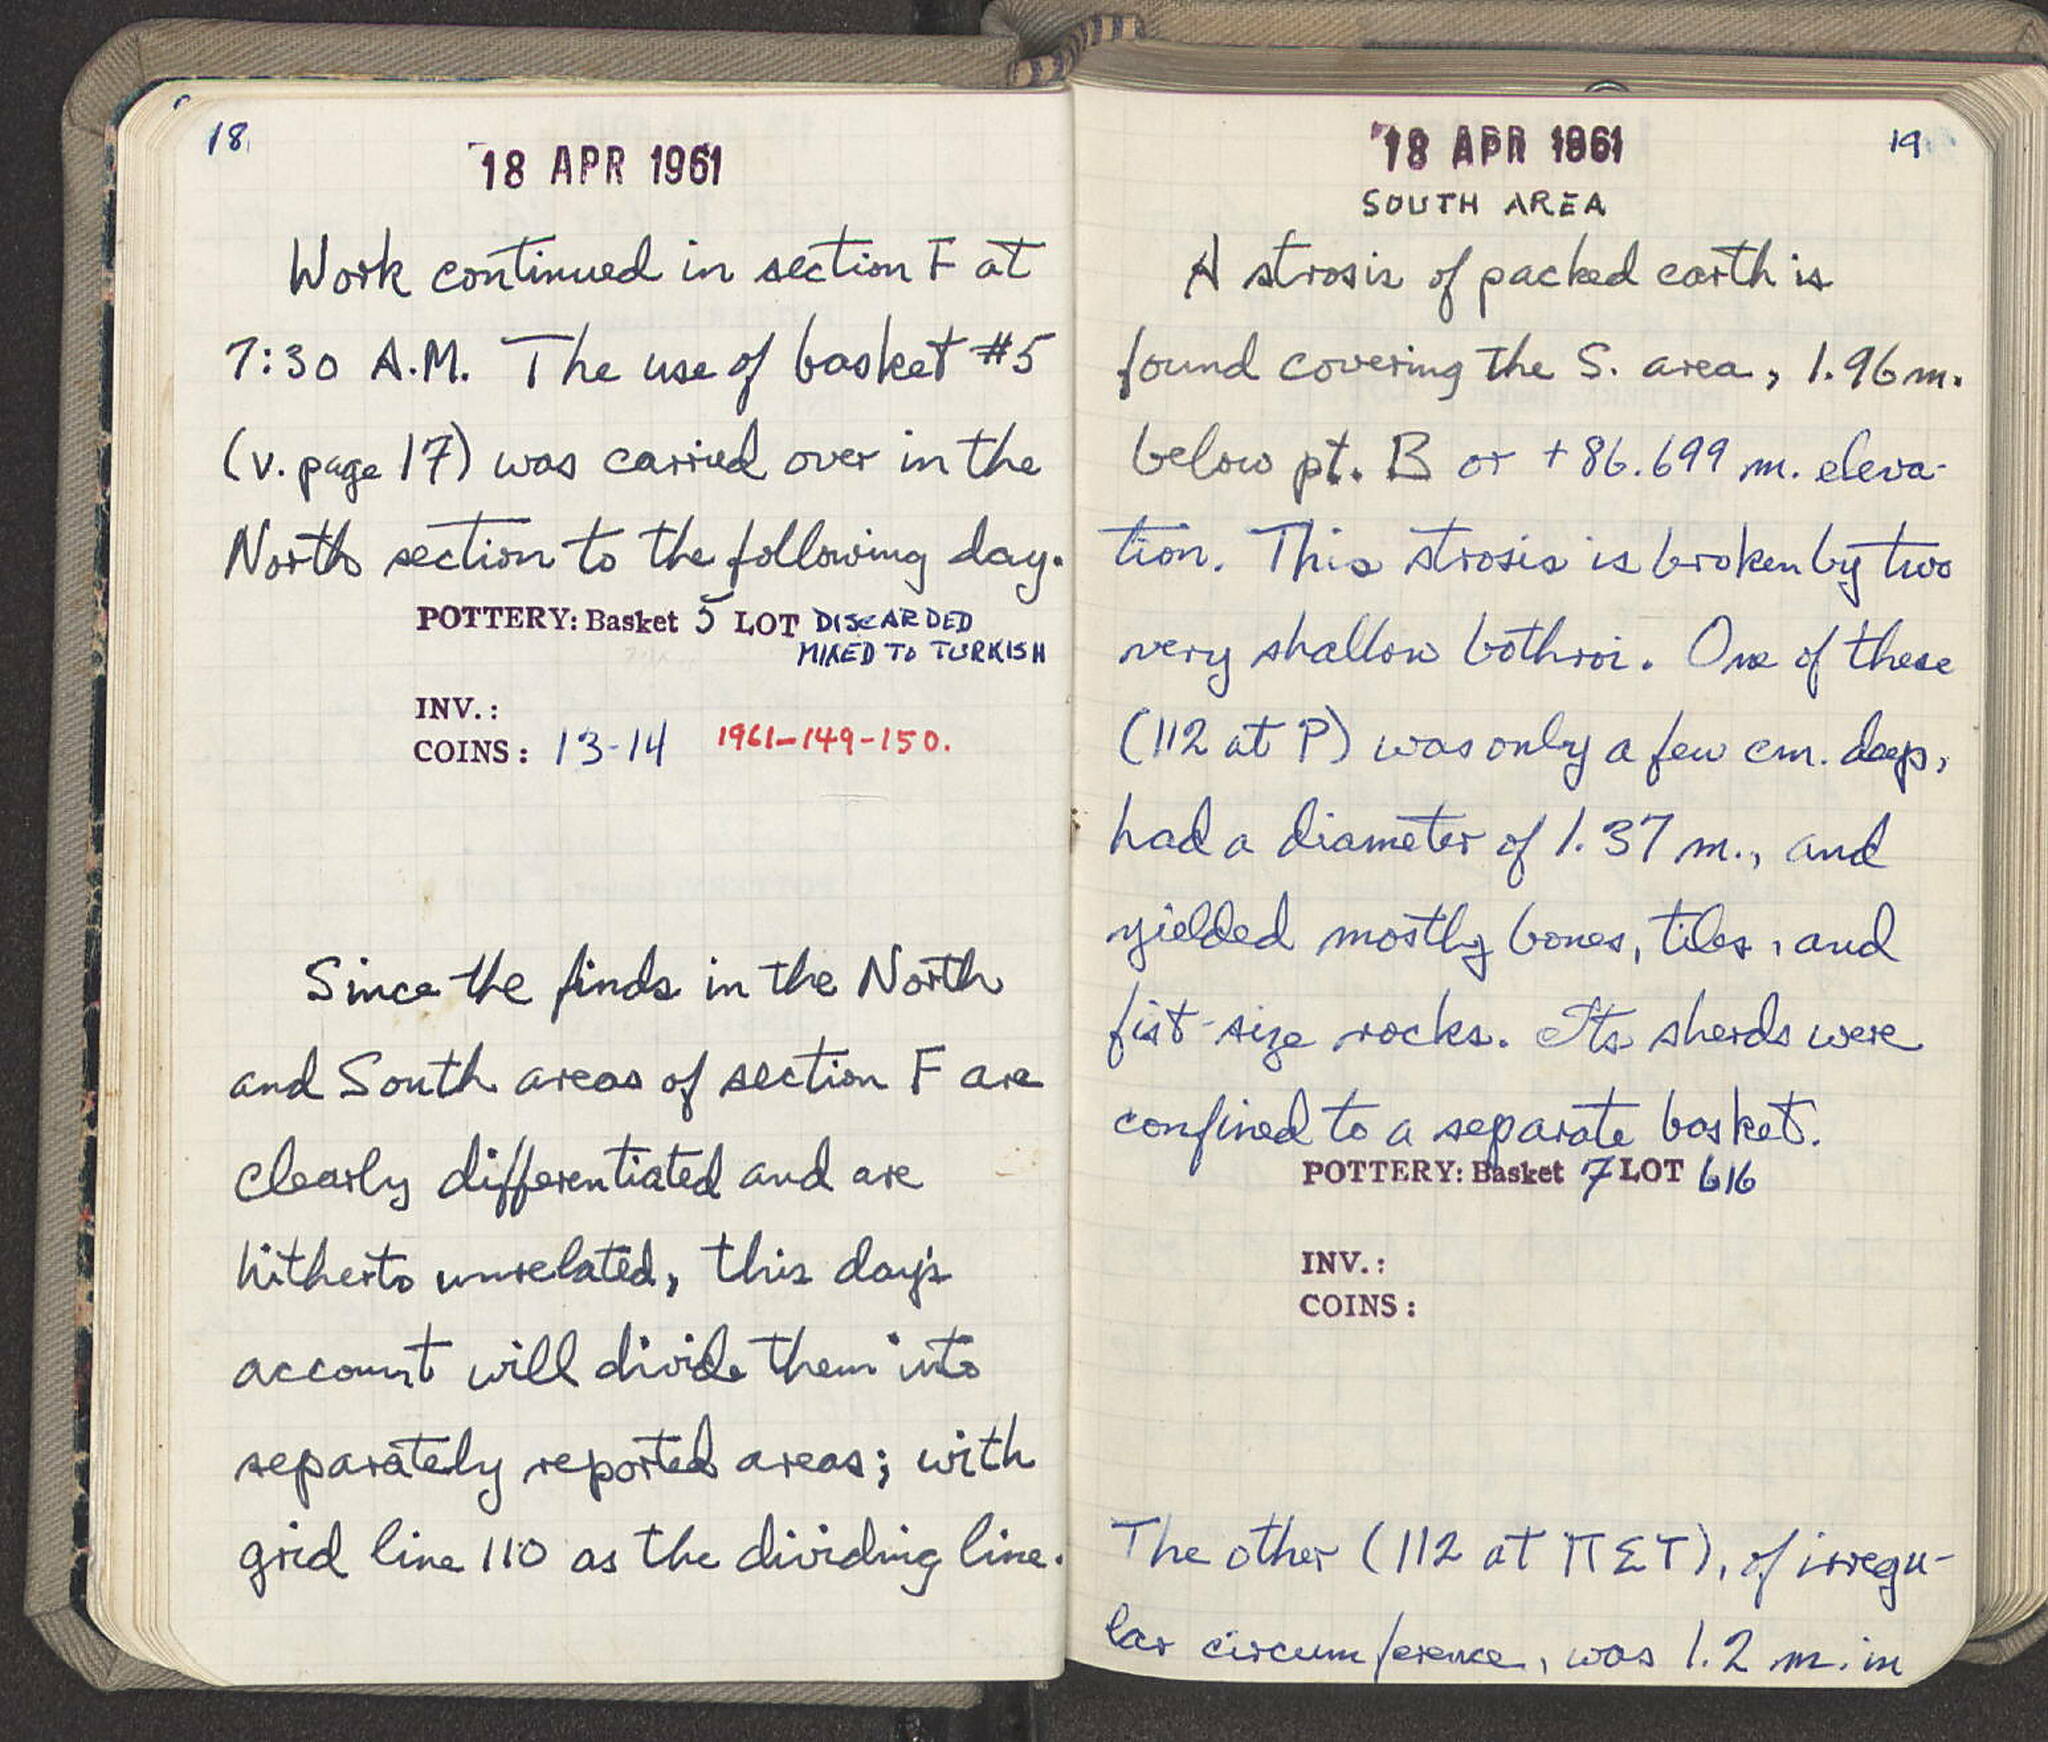 18
18 APR 1961
Work continued in section F at
7:30 A.M. The use of basket #5
(v. page 17) was carried over in the
North section to the following day.
POTTERY: Basket 5 LOT DISCARDED
MIXED TO TURKISH
INV.:
COINS: 13-14 1961-149-150.
Since the finds in the North
and South areas of section F are
clearly differentiated and are
hitherto unrelated, this day's
account will divide them into
separately reported areas; with
grid line 110 as the dividing line.
18 APR 1961
19
SOUTH AREA
A strosis of packed earth is
found covering the S. area, 1.96 m.
below pt. B or +86.699 m. eleva-
tion. This strosis is broken by two
very shallow bothroi. One of these
(112 at P) was only a few cm. deep,
had a diameter of 1.37 m., and
yielded mostly bones, tiles, and
fist-size rocks. Its sherds were
confined to a separate basket.
POTTERY: Basket 7 LOT 616
INV.:
COINS:
The other (112 at ΠΣΤ), of irregu-
lar circumference, was 1.2 m. in